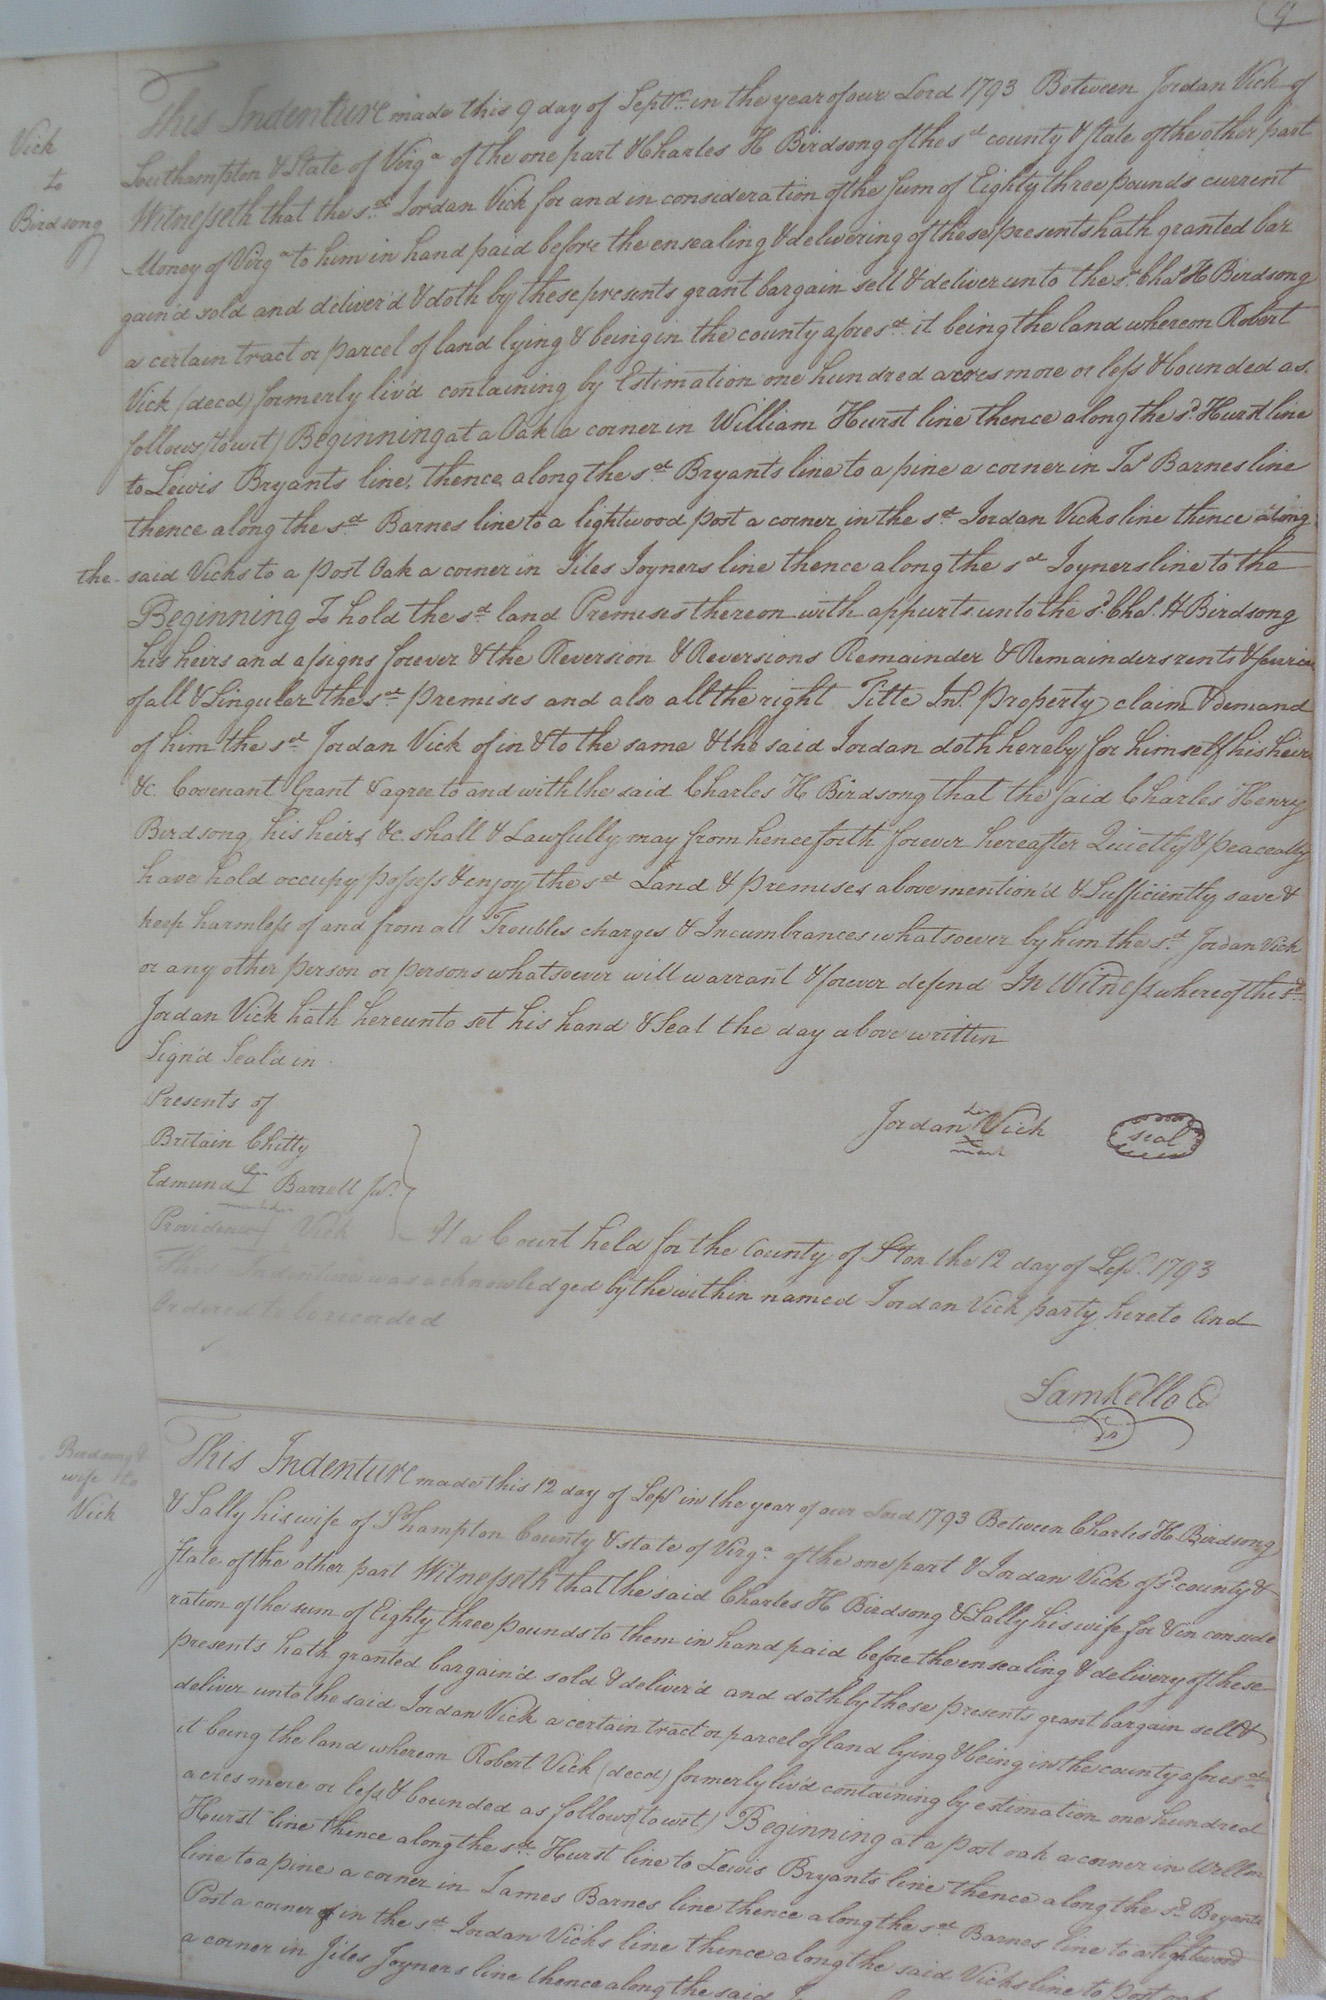 9
Vick
to
Birdsong
This Indenture made this 9 day of Septr. in the year of our Lord 1793 Between Jordan Vick of
Southampton & State of Virga. of the one part & Charles H Birdsong of the sd. county & state of the other part
Witnesseth that the sd. Jordan Vick for and in consideration of the sum of Eighty three pounds current
Money of Virga. to him in hand paid before the ensealing & delivering of these presents hath granted bar
gain'd sold and deliver'd & doth by these presents grant bargain sell & deliver unto the sd. Chas. H Birdsong
a certain tract or parcel of land lying & being in the county aforesd. it being the land whereon Robert
Vick (decd) formerly liv'd containing by Estimation one hundred acres more or less & bounded as
follows (to wit) Beginning at a Oak a corner in William Hurst line thence along the sd. Hurst line
to Lewis Bryants line, thence along the sd. Bryants line to a pine a corner in Jas. Barnes line
thence along the sd. Barnes line to a lightwood post a corner in the sd. Jordan Vicks line thence along
the said Vicks to a post Oak a corner in Jiles Joyners line thence along the sd. Joyners line to the
Beginning To hold the sd. land Premises thereon with appurts. unto the sd. Chas. H Birdsong
his heirs and assigns forever & the Reversion & Reversions Remainder & Remainders rents &
of all & Singuler the sd. premises and also all the right Title Int. Property claim & demand
of him the sd. Jordan Vick of in & to the same & the said Jordan doth hereby for himself his heirs
&c. Covenant Grant & agree to and with the said Charles H Birdsong that the said Charles Henry
Birdsong his heirs &c. shall & Lawfully may from henceforth forever hereafter Quietly & peaceably
have hold occupy possess & enjoy the sd. Land & premises above mention'd & Sufficiently save &
keep harmless of and from all Troubles charges & Incumbrances whatsoever by him the sd. Jordan Vick
or any other person or persons whatsoever will warrant & forever defend In Witness whereof the sd.
Jordan Vick hath hereunto set his hand & Seal the day above written
Sign'd Seal'd in
Presents of
Britain Chitty
Edmund Barrell Jur.
Providence Vick
Jordan his X mark Vick seal
At a Court held for the County of Ston the 12 day of Sepr. 1793
This Indenture was acknowledged by the within named Jordan Vick party hereto and
Ordered to be recorded
Sam Kello Cl
Birdsong &
wife to
Vick
This Indenture made this 12 day of Sepr in the year of our Lord 1793 Between Charles H Birdsong
& Sally his wife of Shampton County & state of Virga. of the one part & Jordan Vick of sd. county &
state of the other part Witnesseth that the said Charles H Birdsong & Sally his wife for & in conside
ration of the sum of Eighty three pounds to them in hand paid before the ensealing & delivery of these
presents hath granted bargain'd sold & deliver'd and doth by these presents grant bargain sell &
deliver unto the said Jordan Vick a certain tract or parcel of land lying & being in the county aforesd.
it being the land whereon Robert Vick (decd) formerly liv'd containing by estimation one hundred
acres more or less & bounded as follows (to wit) Beginning at a post oak a corner in Willm
Hurst line thence along the sd. Hurst line to Lewis Bryants line thence along the sd. Bryants
line to a pine a corner in James Barnes line thence along the sd. Barnes line to a lightwood
Post a corner in the sd. Jordan Vicks line thence along the said Vicks line to post oak
a corner in Jiles Joyners line thence along the said